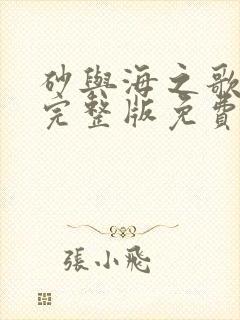 砂與海之歌
完整版免費
張小飛